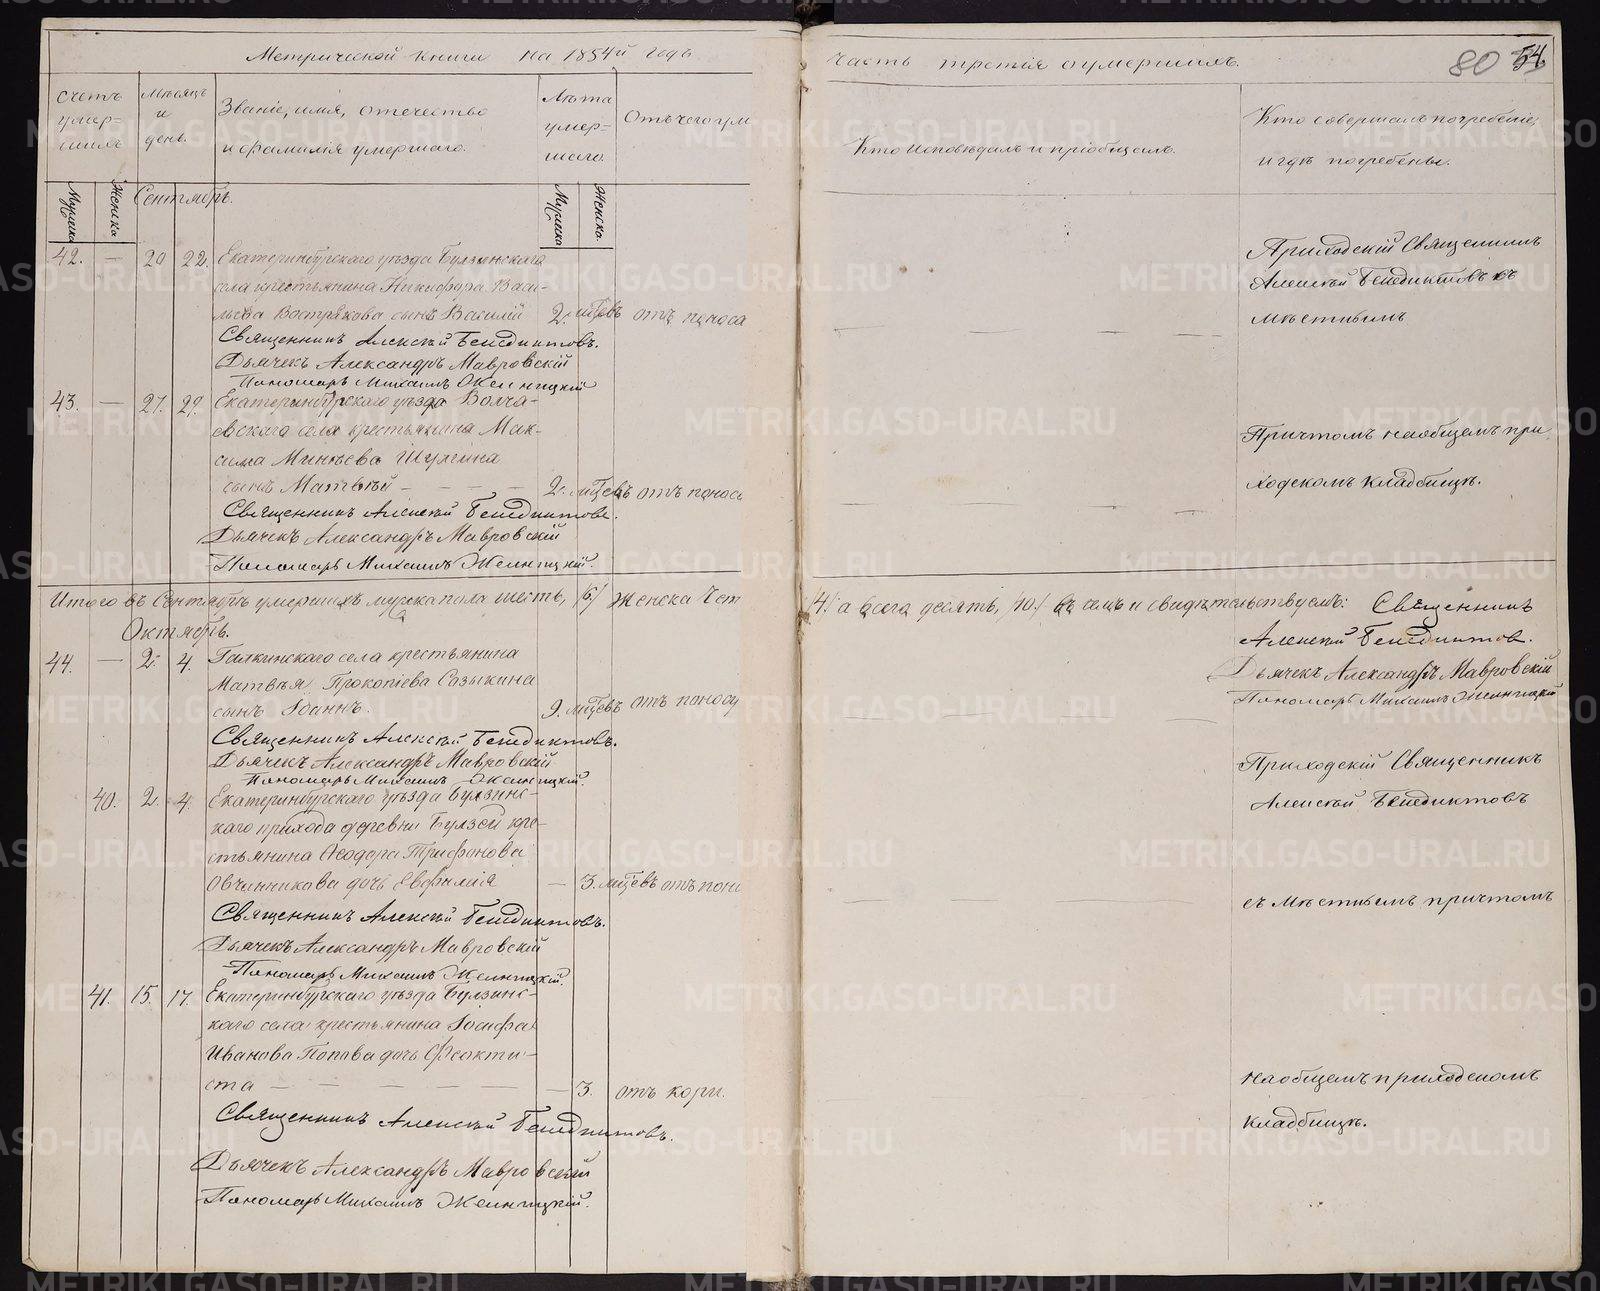 Метрической книги на 1854й годъ
часть третія о умершихъ.
80 54
Счетъ умер-шихъ
Мѣсяцъ и день.
Званіе, имя, отечество
и фамилія умершаго.
Лѣта умер-шаго.
Отъ чего ум
Кто исповѣдалъ и пріобщалъ.
Кто совершалъ погребеніе,
и гдѣ погребены.
Мужска
Женска
Сентябрь.
Мужска
Женска
42. — 20 22. Екатеринбургскаго уѣзда Булзинскаго
села крестьянина Никифора Васи-
льева Вострякова сынъ Василій 2. мѣцевъ отъ поноса
Священникъ Алексѣй Бенедиктовъ.
Дьячекъ Александръ Мавровскій
Пономарь Михаилъ
Приходскій Священникъ
Алексѣй Бенедиктовъ съ
мѣстнымъ
43. — 27. 29. Екатеринбургскаго уѣзда
села крестьянина Мак-
сима Минѣева Шулгина
сынъ Матвѣй — — — — 2. мѣцевъ отъ поноса
Священникъ Алексѣй Бенедиктовъ.
Дьячекъ Александръ Мавровскій
Пономарь Михаилъ
Причтомъ на общемъ при
ходскомъ кладбищѣ.
Итого въ Сентябрѣ умершихъ мужска пола шесть, /6/ женска Чет
/4./ а всего десять, /10./ въ семъ и свидѣтельствуемъ: Священникъ
Алексѣй Бенедиктов.
Дьячекъ Александръ Мавровскій
Пономарь Михаилъ
Октябрь.
44. — 2. 4. Галкинскаго села крестьянина
Матвѣя Прокопіева Сазыкина
сынъ Іоаннъ. 9. мѣцевъ отъ поносу
Священникъ Алексѣй Бенедиктовъ.
Дьячекъ Александръ Мавровскій
Пономарь Михаилъ
Приходскій Священникъ
Алексѣй Бенедиктовъ
40. 2. 4. Екатеринбургскаго уѣзда Булзинс-
каго прихода деревни Булзей кре-
стьянина Ѳеодора Трифонова
Овчинникова дочь Евфимія — 3. мѣцевъ отъ поно
Священникъ Алексѣй Бенедиктовъ.
Дьячекъ Александръ Мавровскій
Пономарь Михаилъ
съ мѣстнымъ причтомъ
41. 15. 17. Екатеринбургскаго уѣзда Булзинс-
каго села крестьянина Іосифа
Иванова Попова дочь Ѳеокти-
ста — — — — — — 3. отъ кори.
Священникъ Алексѣй Бенедиктовъ.
Дьячекъ Александръ Мавровскій
Пономарь Михаилъ
на общемъ приходскомъ
кладбищѣ.
METRIKI.GASO-URAL.RU